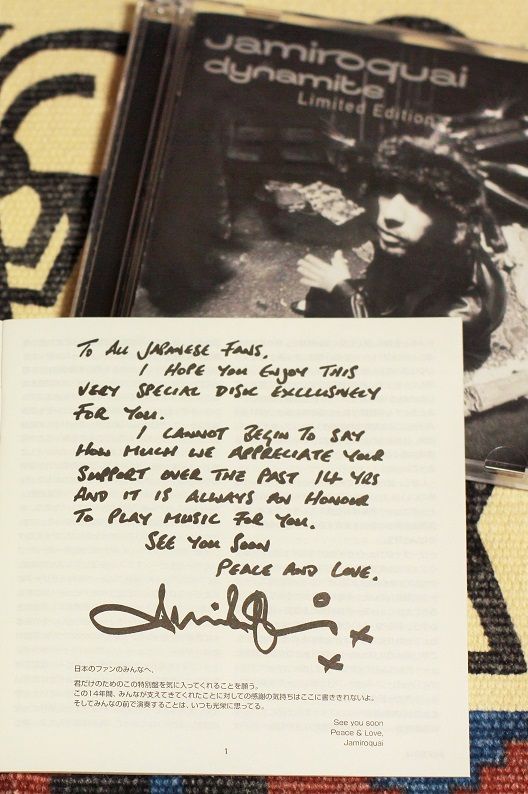 Jamiroquai
dynamite
Limited Edition
To All Japanese Fans,
I Hope You Enjoy This
Very Special Disk Exclusively
For You.
I Cannot Begin To Say
How Much We Appreciate Your
Support Over The Past 14 Yrs
And It Is Always An Honour
To Play Music For You.
See You Soon
Peace And Love.
日本のファンのみんなへ、
君だけのためのこの特別盤を気に入ってくれることを願う。
この14年間、みんなが支えてきてくれたことに対しての感謝の気持ちはここに書ききれないよ。
そしてみんなの前で演奏することは、いつも光栄に思ってる。
See you soon
Peace & Love,
Jamiroquai
1